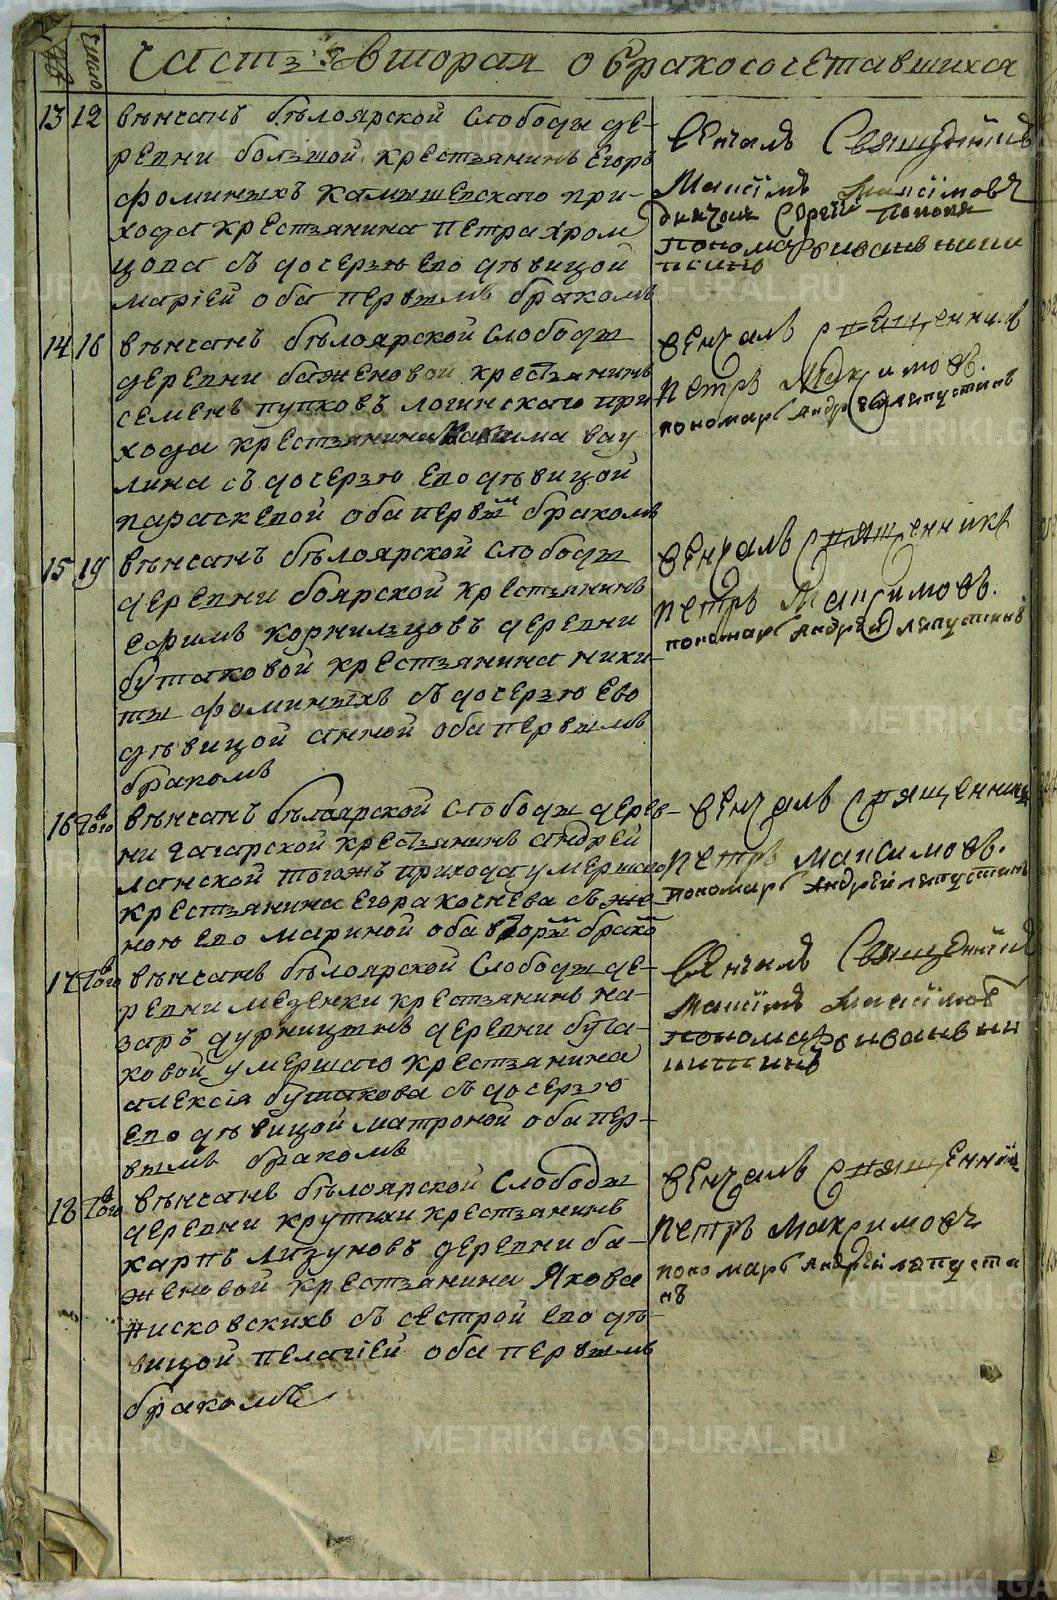 Часть вторая о бракосочетавшихся
№
Число
13 12 вѣнчанъ бѣлоярской слободы де-
ревни большой крестьянинъ Егоръ
фоминыхъ камышевскаго при-
хода крестьянина петра хром
цова съ дочерью ево дѣвицой
маріей оба первымъ бракомъ
венчалъ Священникъ
Максімъ Максімовъ
дьячокъ Сергій Поповъ
пономарь иванъ
14 16 вѣнчанъ бѣлоярской слободы
деревни баженовой крестьянинъ
семенъ пупковъ логинскаго при
хода крестьянина вау
лина съ дочерью ево дѣвицой
параскевой оба первым бракомъ
венчалъ священникъ
петръ Максимовъ.
пономарь андрей лепустинъ
15 19 вѣнчанъ бѣлоярской слободы
деревни боярской крестьянинъ
ефимъ корнильцовъ деревни
бутаковой крестьянина ники-
ты фоминыхъ съ дочерью ево
дѣвицой анной оба первымъ
бракомъ
венчалъ священникъ
петръ Максимовъ.
пономарь андрей лепустинъ
16 тово вѣнчанъ бѣлоярской слободы дерев-
ни гагарской крестьянинъ андрей
ланской тогожъ прихода умершаго
крестьянина егора коснева съ же-
ною ево мариной оба вторым брако
венчалъ священникъ
петръ максимовъ.
пономарь андрей лепустинъ
17 тово вѣнчанъ бѣлоярской слободы де-
ревни мезенки крестьянинъ на-
заръ дурницынъ деревни бута
ковой умершаго крестьянина
алексія бутакова съ дочерью
ево дѣвицой матроной оба пер-
вымъ бракомъ
венчалъ Священникъ
Максімъ Максімовъ
пономарь иванъ
18 тово вѣнчанъ бѣлоярской слободы
деревни крутихи крестьянинъ
карпъ лизуновъ деревни ба-
женовой крестьянина Якова
писковскихъ съ сестрой ево дѣ-
вицой пелагіей оба первымъ
бракомъ
венчалъ священникъ
петръ максимовъ
пономарь андрей лепусти
нъ
METRIKI.GASO-URAL.RU